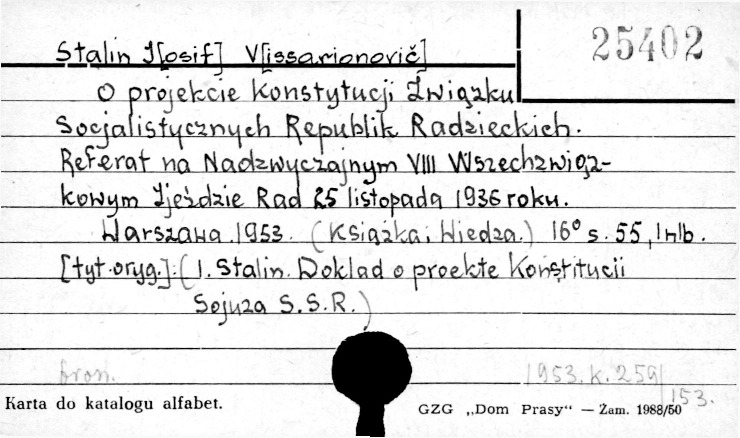 25402
Stalin J[osif] V[issarionovič]
O projekcie Konstytucji Związku
Socjalistycznych Republik Radzieckich.
Referat na Nadzwyczajnym VIII Wszechzwiąz-
kowym Zjeździe Rad 25 listopada 1936 roku.
Warszawa 1953. (Książka i Wiedza.) 16° s. 55, 1 nlb.
[tyt. oryg.]: (I. Stalin. Doklad o proekte Konstitucii
Sojuza S.S.R.)
bron.
1953.K.259/
153.
Karta do katalogu alfabet.
GZG „Dom Prasy“ — Żam. 1988/50